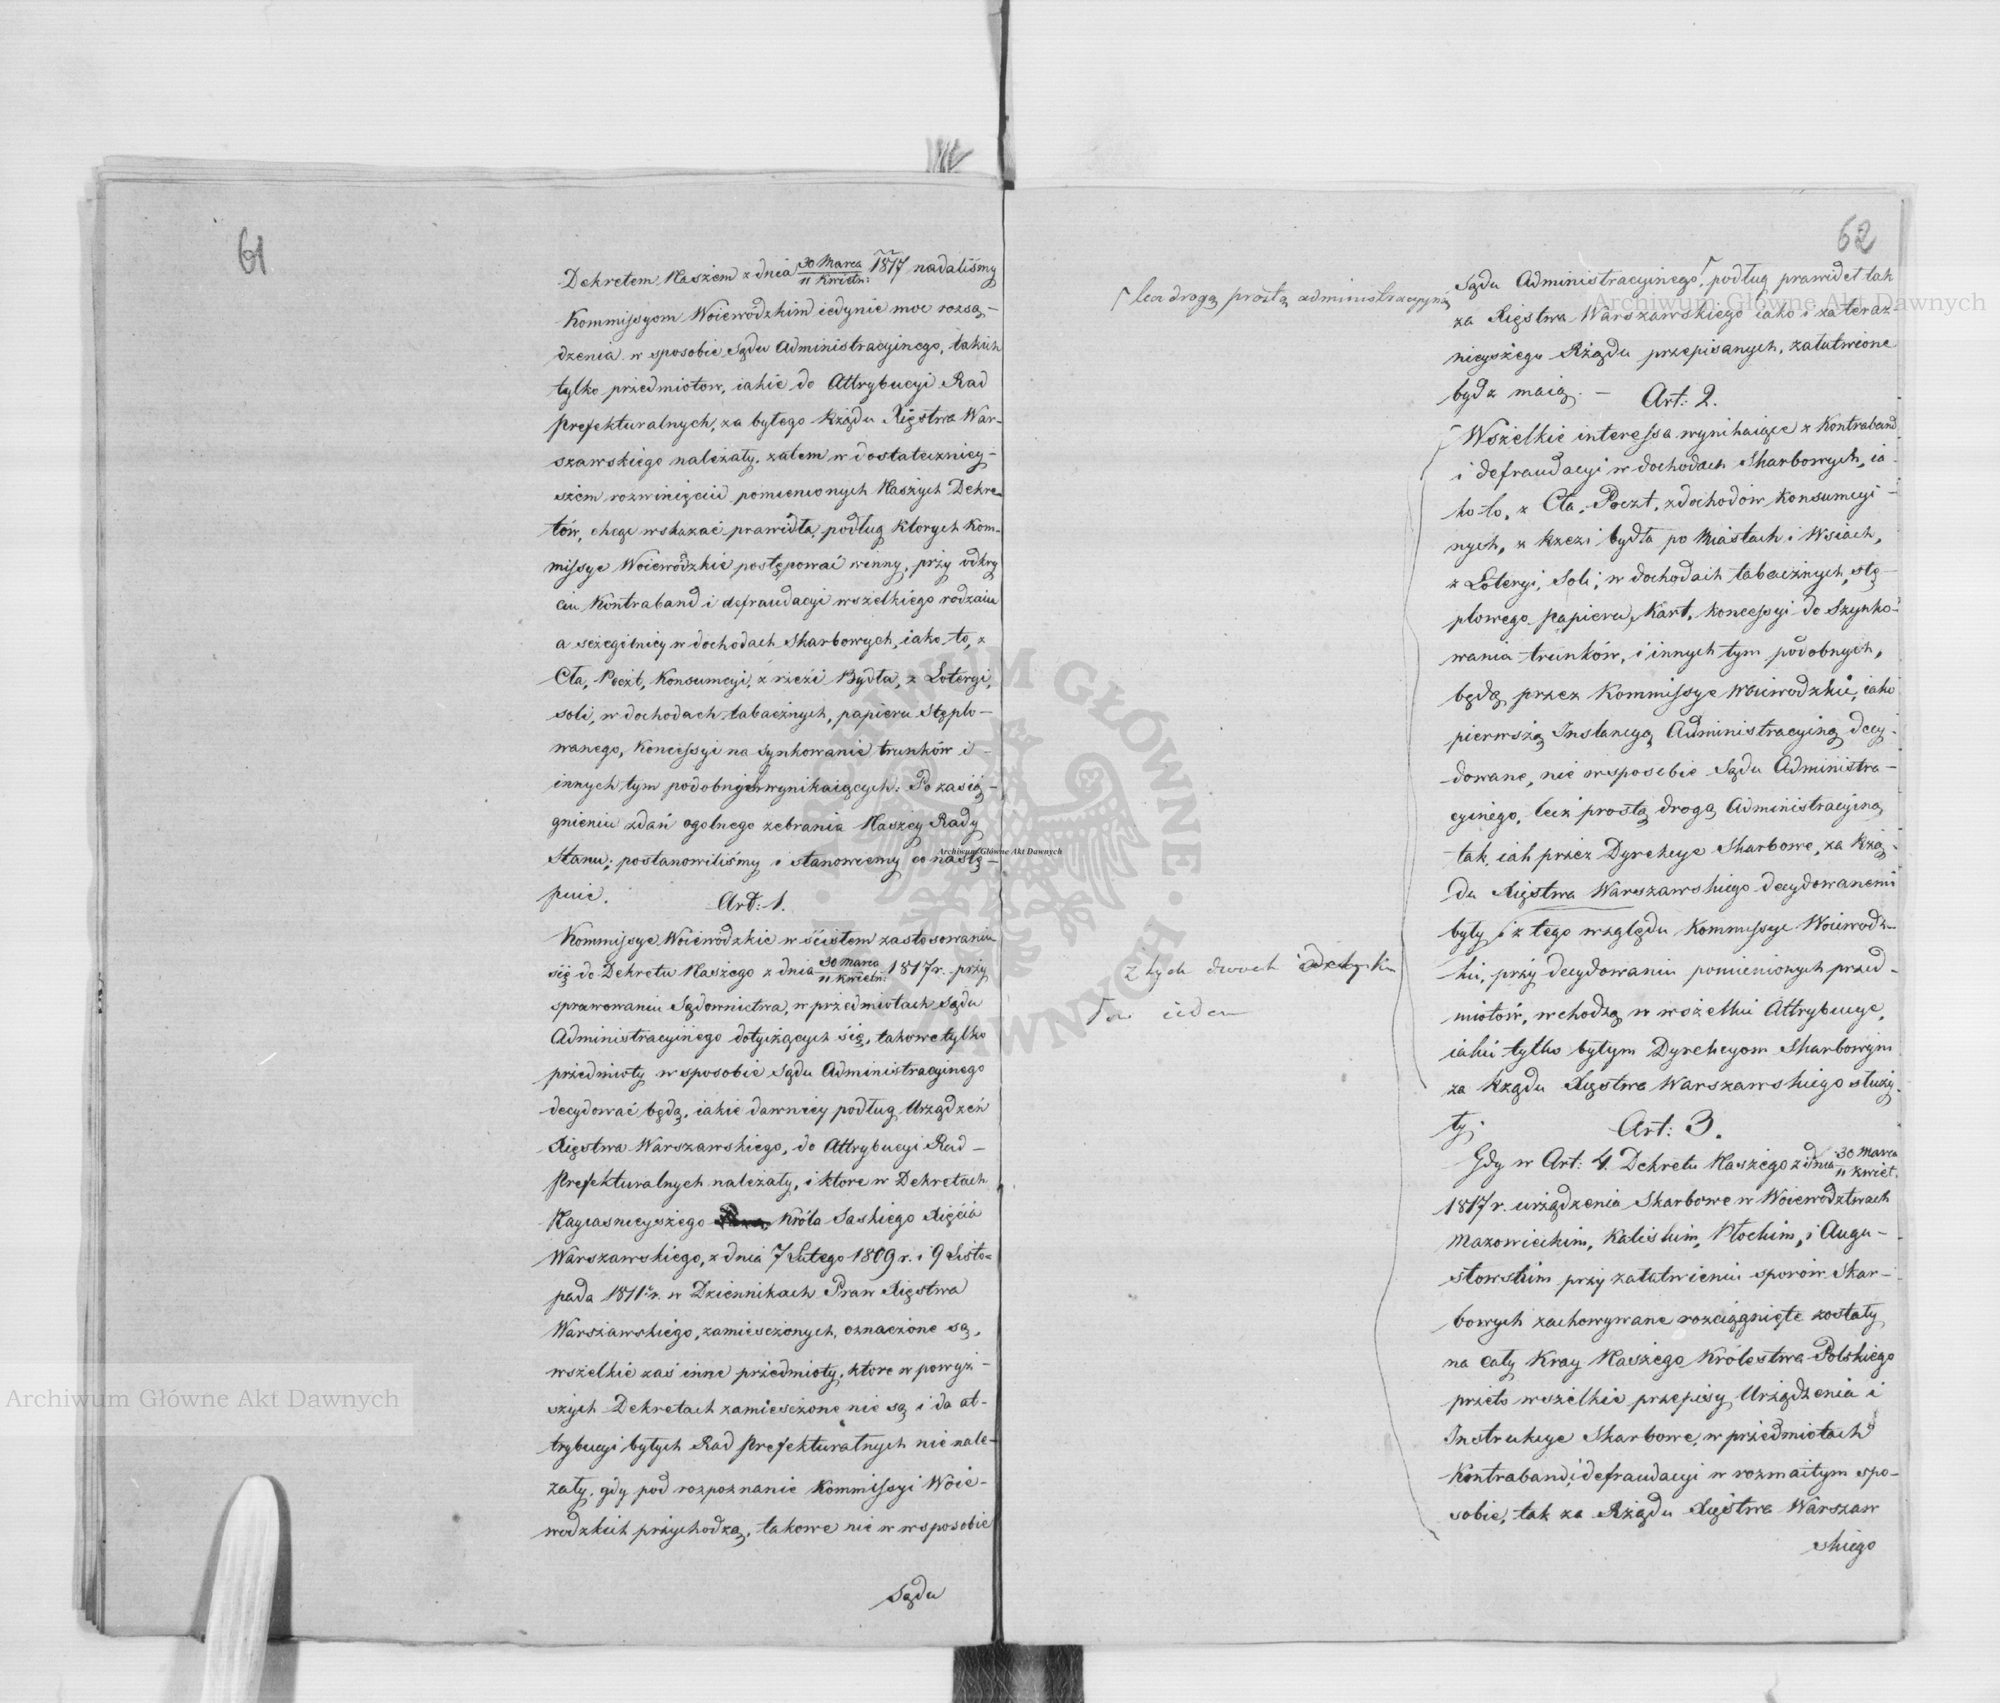 61
Dekretem Naszem z dnia 30 Marca / 11 Kwietn: 1817 nadaliśmy
Kommissyom Woiewódzkim iedynie moc rozsą-
dzenia w sposobie Sądu Administracyinego, takich
tylko przedmiotow, iakie do Attrybucyi Rad
Prefekturalnych, za byłego Rządu Xięstwa War-
szawskiego należały, zatem w dostateczniey-
szem rozwinięciu pomienionych Naszych Dekre-
tów, chcąc wskazać prawidła, podług ktorych Kom-
missye Woiewódzkie postępować winny, przy odkry
ciu Kontraband i defraudacyi wszelkiego rodzaiu
a szczegolniey w dochodach Skarbowych, iako to, z
Cła, Poczt, Konsumcyi, z rzezi Bydła, z Loteryi,
soli, w dochodach tabacznych, papieru Stęplo-
wanego, Koncessyi na synkowanie trunków i -
innych tym podobnych wynikaiących. Po zasią-
gnieniu zdań ogolnego zebrania Naszey Rady
Stanu; postanowiliśmy i stanowiemy co nastę-
puie.
Art: 1.
Kommissye Woiewódzkie w ścisłem zastosowaniu
się do Dekretu Naszego z dnia 30 Marca / 11 Kwietn: 1817 r. przy
sprawowaniu Sądownictwa, w przedmiotach Sądu
Administracyinego dotyczących się, takowe tylko
przedmioty w sposobie Sądu Administracyinego
decydować będą, iakie dawniey podług Urządzeń
Xięstwa Warszawskiego, do Attrybucyi Rad -
Prefekturalnych należały, i ktore w Dekretach
Nayiasnieyszego Króla Saskiego Xięcia
Warszawskiego, z dnia 7 Lutego 1809 r. i 9 Listo=
pada 1811 r. w Dziennikach Praw Xięstwa
Warszawskiego, zamieszczonych, oznaczone są,
wszelkie zaś inne przedmioty, ktore w powyż-
szych Dekretach zamieszczone nie są i do at-
trybucyi byłych Rad Prefekturalnych nie nale-
żały, gdy pod rozpoznanie Kommissyi Woie-
wodzkich przychodzą, takowe nie w sposobie
Sądu
62
lecz drogą prostą administracyiną
Sądu Administracyinego, podług prawideł tak
za Xięstwa Warszawskiego iako i za teraz-
nieyszego Rządu przepisanych, załatwione
bydź maią. -
Art: 2.
Wszelkie interessa wynikaiące z Kontraband
i defraudacyi w dochodach Skarbowych, ia
ko to, z Cła, Poczt, z dochodów Konsumcyi-
nych, z Rzezi bydła po Miastach i Wsiach,
z Loteryi, Soli, w dochodach tabacznych, stę-
plowego papieru, Kart, koncessyi do Szynko-
wania trunków, i innych tym podobnych,
będą przez Kommissye Woiewodzkie, iako
pierwszą Instancyą Administracyiną decy-
dowane, nie w sposobie Sądu Administra-
cyinego, lecz prostą drogą Administracyiną
tak, iak przez Dyrekcye Skarbowe, za Rzą-
du Xięstwa Warszawskiego decydowanemi
były i z tego względu Kommissye Woiewodz-
kie, przy decydowaniu pomienionych przed-
miotów, wchodzą w wszelkie Attrybucye,
iakie tylko byłym Dyrekcyom Skarbowym
za Rządu Xięstwa Warszawskiego służy-
ły.
z tych dwoch
ieden
Art: 3.
Gdy w Art: 4. Dekretu Naszego z dnia 30 Marca / 11 Kwiet.
1817 r. urządzenia Skarbowe w Woiewództwach
Mazowieckim, Kaliskim, Płockim, i Augu-
stowskim przy załatwieniu sporów Skar-
bowych zachowywane rozciągnięte zostały
na cały Kray Naszego Królestwa Polskiego
przeto wszelkie przepisy Urządzenia i
Instrukcye Skarbowe, w przedmiotach
Kontraband, i defraudacyi w rozmaitym spo-
sobie, tak za Rządu Xięstwa Warszaw
skiego
Archiwum Główne Akt Dawnych
Archiwum Główne Akt Dawnych
Archiwum Główne Akt Dawnych
ARCHIWUM GŁÓWNE AKT DAWNYCH